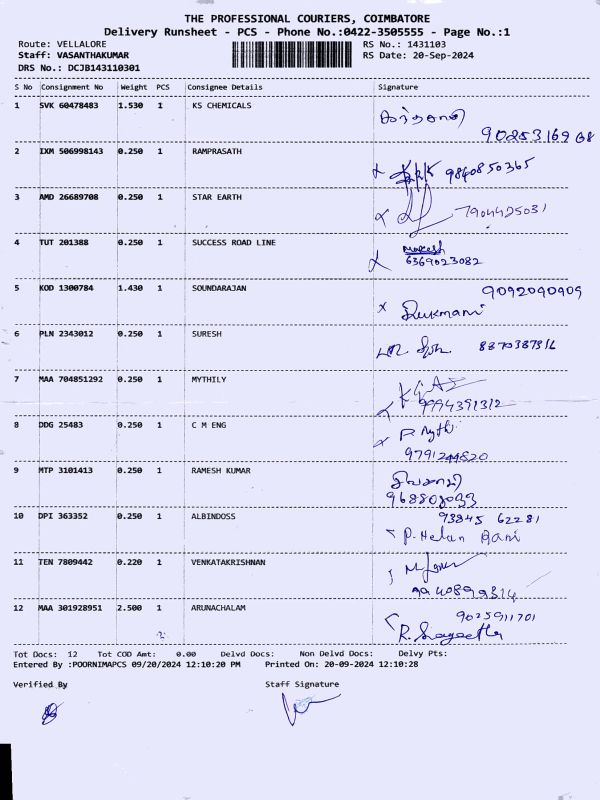 THE PROFESSIONAL COURIERS, COIMBATORE
Delivery Runsheet - PCS - Phone No.:0422-3505555 - Page No.:1
Route: VELLALORE RS No.: 1431103
Staff: VASANTHAKUMAR RS Date: 20-Sep-2024
DRS No.: DCJB143110301
S No Consignment No Weight PCS Consignee Details Signature
1 SVK 60478483 1.530 1 KS CHEMICALS
2 IXM 506998143 0.250 1 RAMPRASATH
9840850365
3 AMD 26689708 0.250 1 STAR EARTH
7904425031
4 TUT 201388 0.250 1 SUCCESS ROAD LINE
6369023082
5 KOD 1300784 1.430 1 SOUNDARAJAN 9092090909
Rukmani
6 PLN 2343012 0.250 1 SURESH
7 MAA 704851292 0.250 1 MYTHILY
9994391312
8 DDG 25483 0.250 1 C M ENG
9 MTP 3101413 0.250 1 RAMESH KUMAR
10 DPI 363352 0.250 1 ALBINDOSS 93845 62281
P. Helan Rani
11 TEN 7809442 0.220 1 VENKATAKRISHNAN
12 MAA 301928951 2.500 1 ARUNACHALAM 9025911701
Tot Docs: 12 Tot COD Amt: 0.00 Delvd Docs: Non Delvd Docs: Delvy Pts:
Entered By :POORNIMAPCS 09/20/2024 12:10:20 PM Printed On: 20-09-2024 12:10:28
Verified By Staff Signature